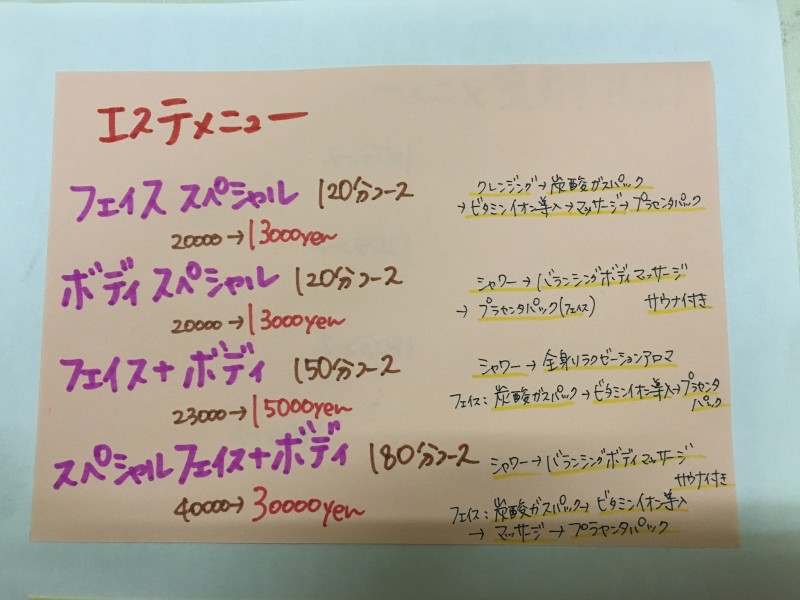 エステメニュー
フェイス スペシャル 120分コース
20000→13000yen
クレンジング→炭酸ガスパック
→ビタミンイオン導入→マッサージ→プラセンタパック
ボディ スペシャル 120分コース
20000→13000yen
シャワー→バランシングボディマッサージ
→プラセンタパック(フェイス) サウナ付き
フェイス+ボディ 150分コース
23000→15000yen
シャワー→全身リラクゼーションアロマ
フェイス:炭酸ガスパック→ビタミンイオン導入→プラセンタ
パック
スペシャルフェイス+ボディ 180分コース
40000→30000yen
シャワー→バランシングボディマッサージ
サウナ付き
フェイス:炭酸ガスパック→ビタミンイオン導入
→マッサージ→プラセンタパック